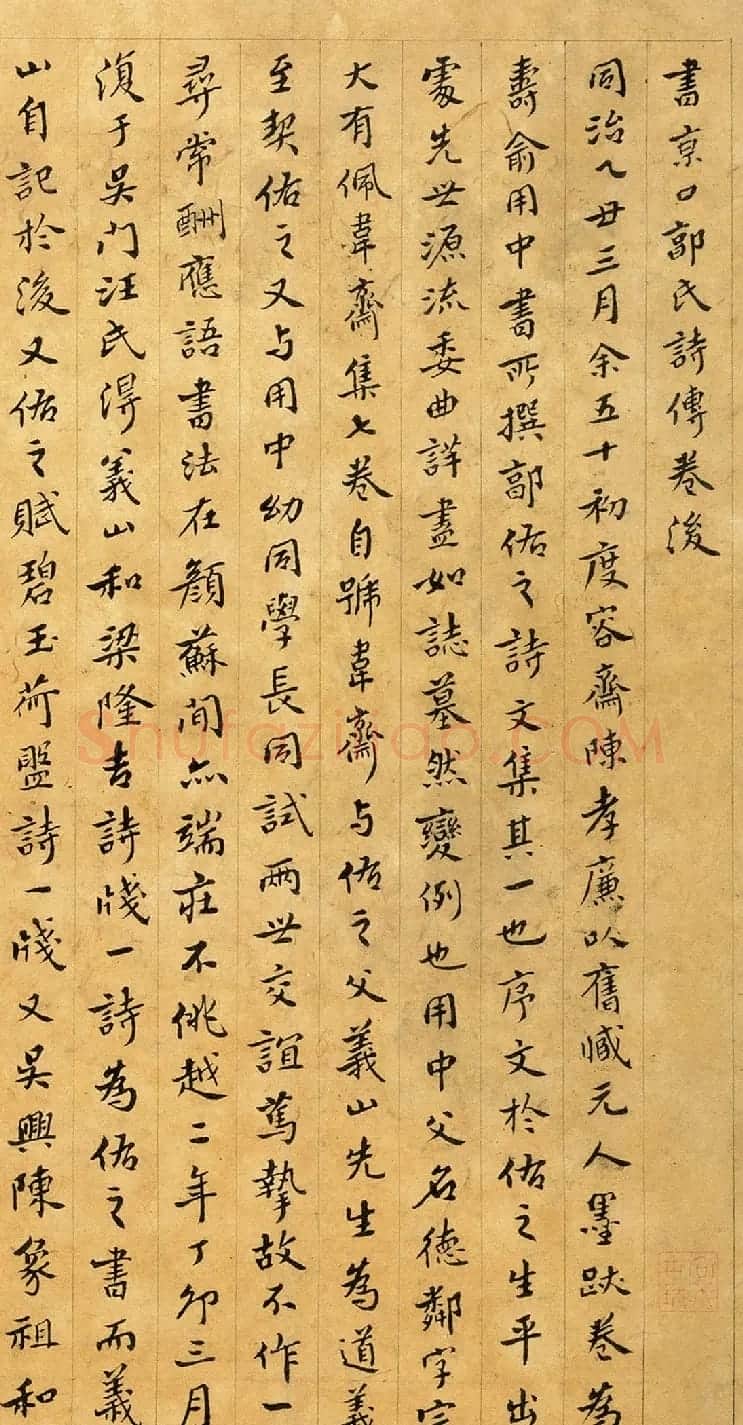 書京口郭氏詩傳卷後
同治乙丑三月余五十初度容齋陳孝廉以舊臧元人墨跡卷為
壽俞用中書所撰郭佑之詩文集其一也序文於佑之生平出
處先世源流委曲詳盡如誌墓然變例也用中父名德鄰字宗
大有佩韋齋集七卷自號韋齋与佑之父義山先生為道義
至契佑之又与用中幼同學長同試兩世交誼篤摯故不作一
尋常酬應語書法在顏蘇間亦端莊不佻越二年丁卯三月
復于吳門汪氏得義山和梁隆吉詩牋一詩為佑之書而義
山自記於後又佑之賦碧玉荷盤詩一牋又吳興陳象祖和
shufaziliao.com